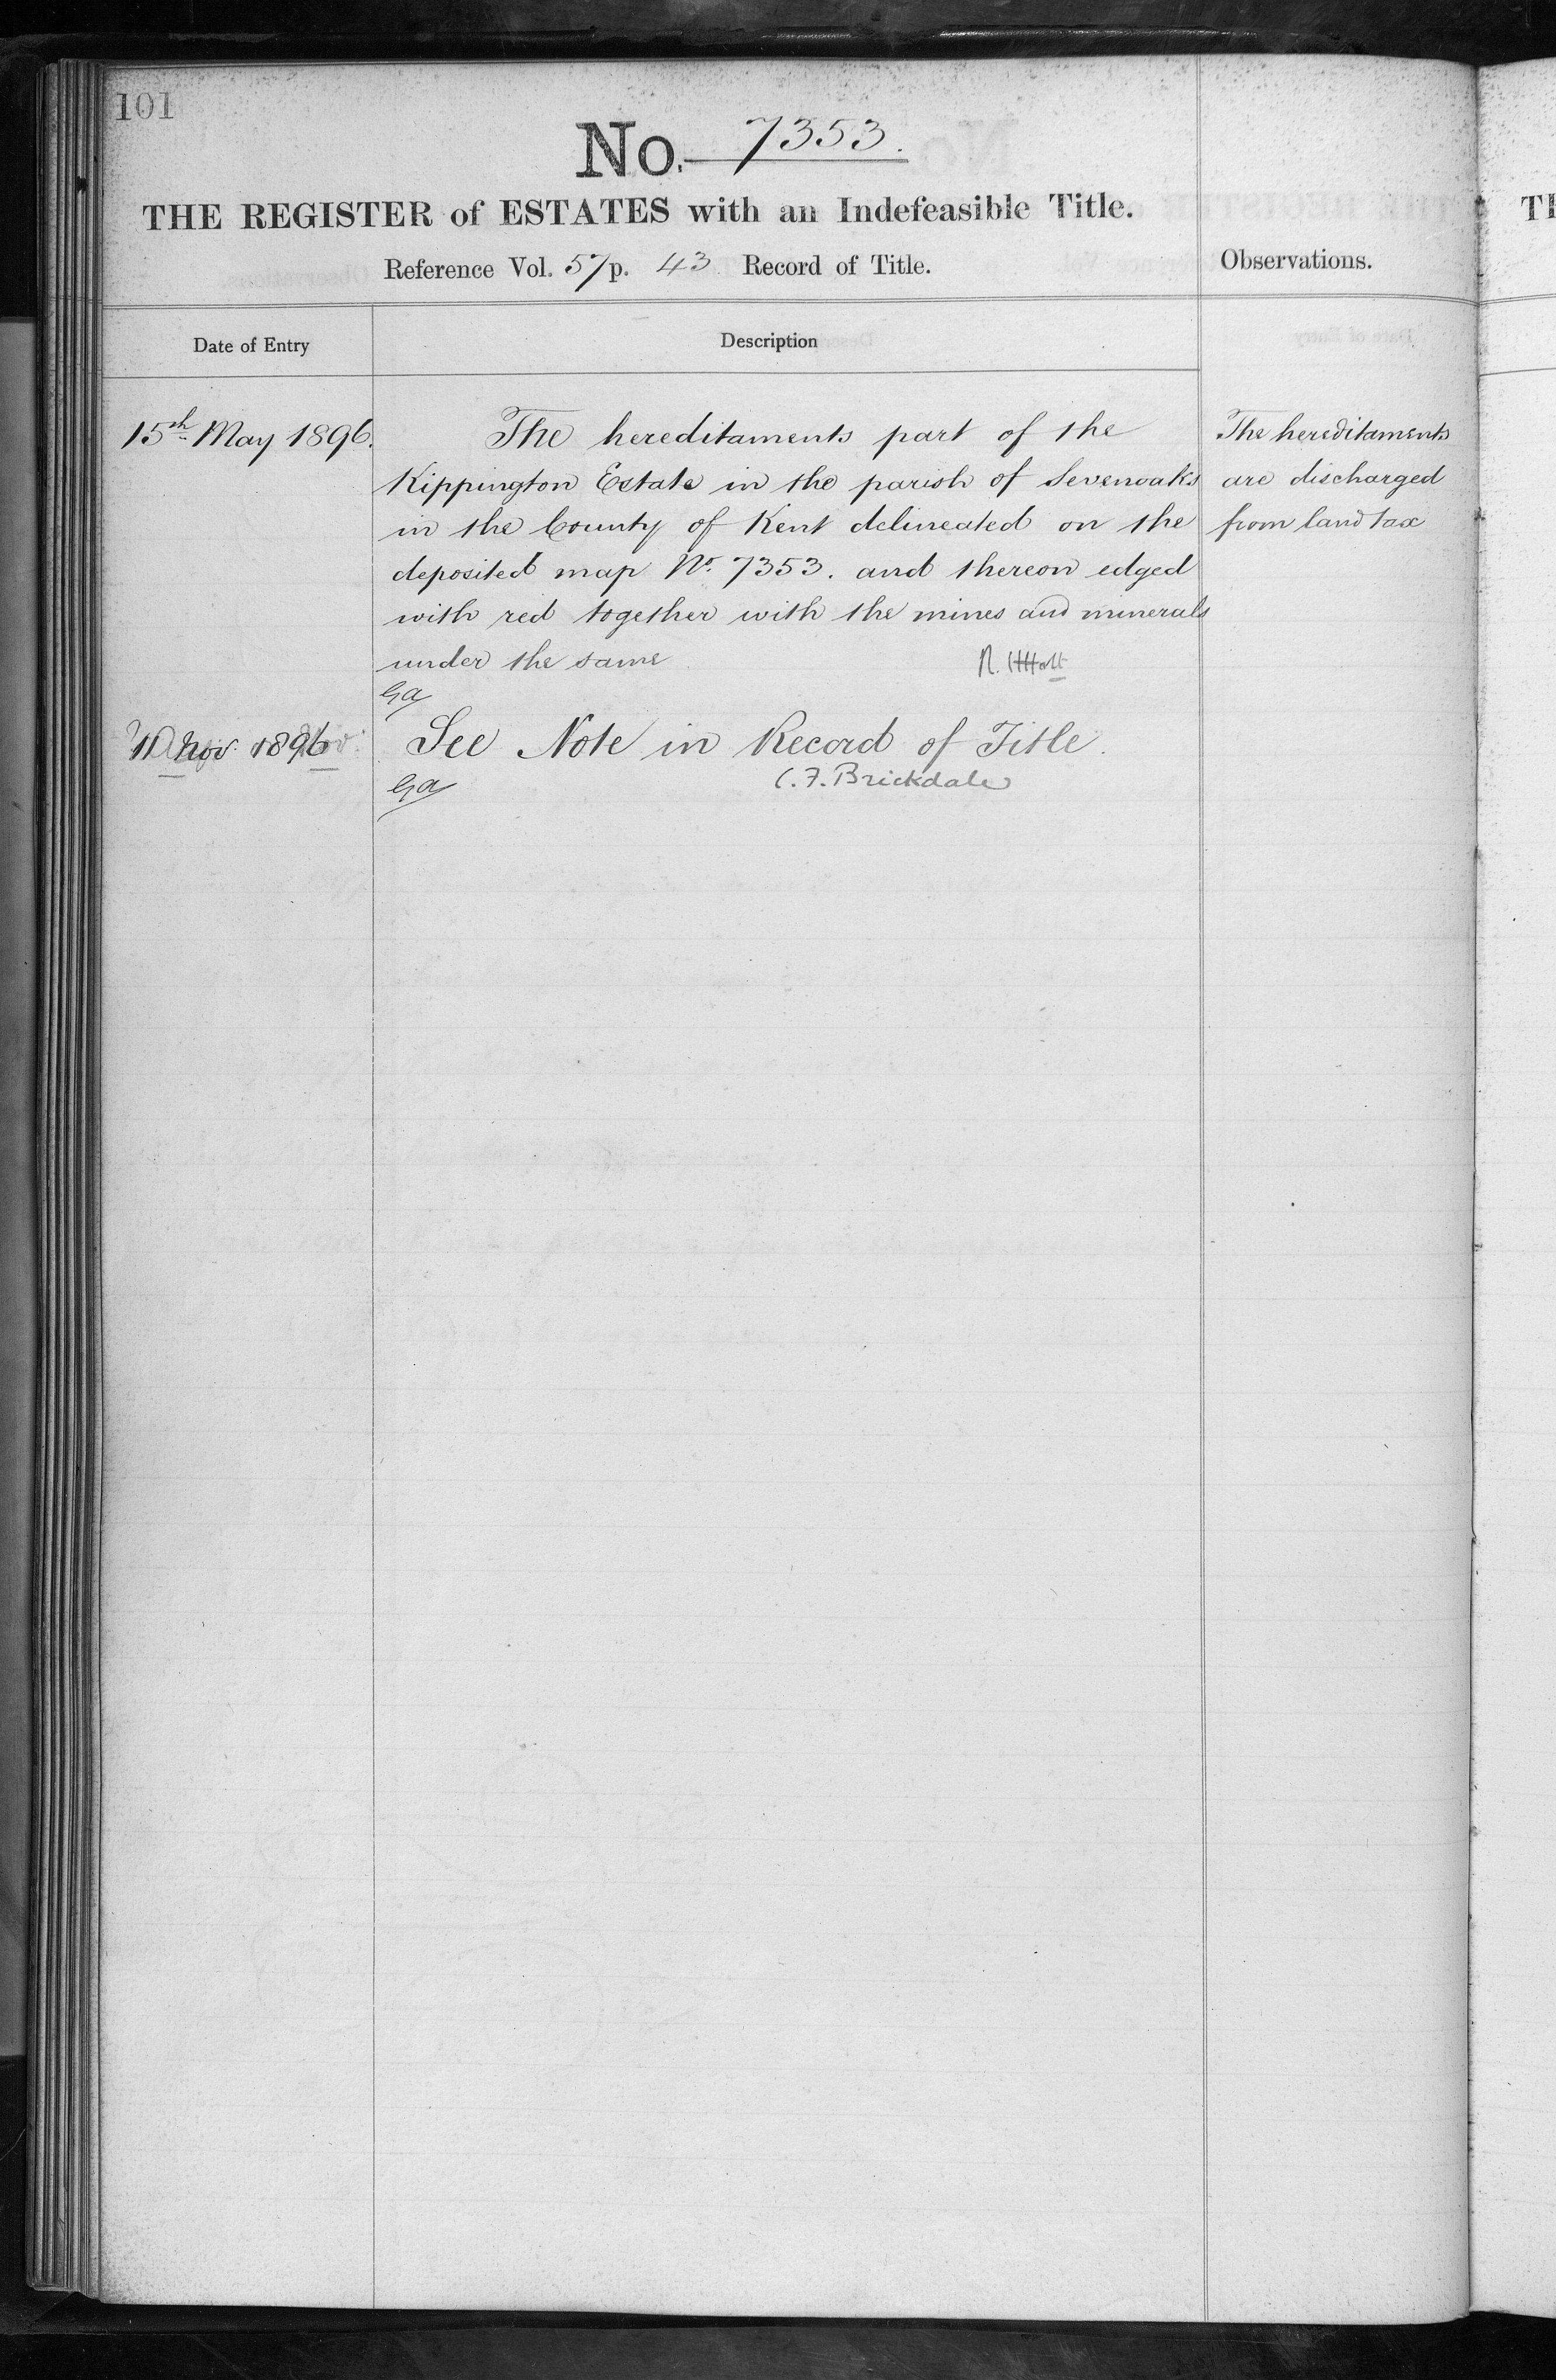 101
No. 7353.
THE REGISTER of ESTATES with an Indefeasible Title.
Reference Vol. 57 p. 43 Record of Title.
Observations.
Date of Entry
Description
15th May 1896.
The hereditaments part of the
Kippington Estate in the parish of Sevenoaks
in the County of Kent delineated on the
deposited map No. 7353. and thereon edged
with red together with the mines and minerals
under the same
R. H Holt
Ga
The hereditaments
are discharged
from land tax
11 Nov. 1896
See Note in Record of Title.
C. F. Brickdale
Ga